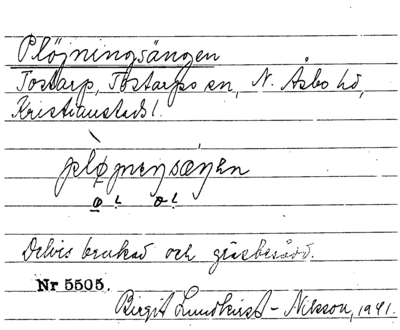 Plöjningsängen
Tostarp, Tostarps sn, N. Åsbo hd,
Kristianstads l.
pløjneŋsæŋen
Delvis brukad och gräsbesådd.
Nr 5505.
Birgit Lundkvist-Nilsson, 1941.